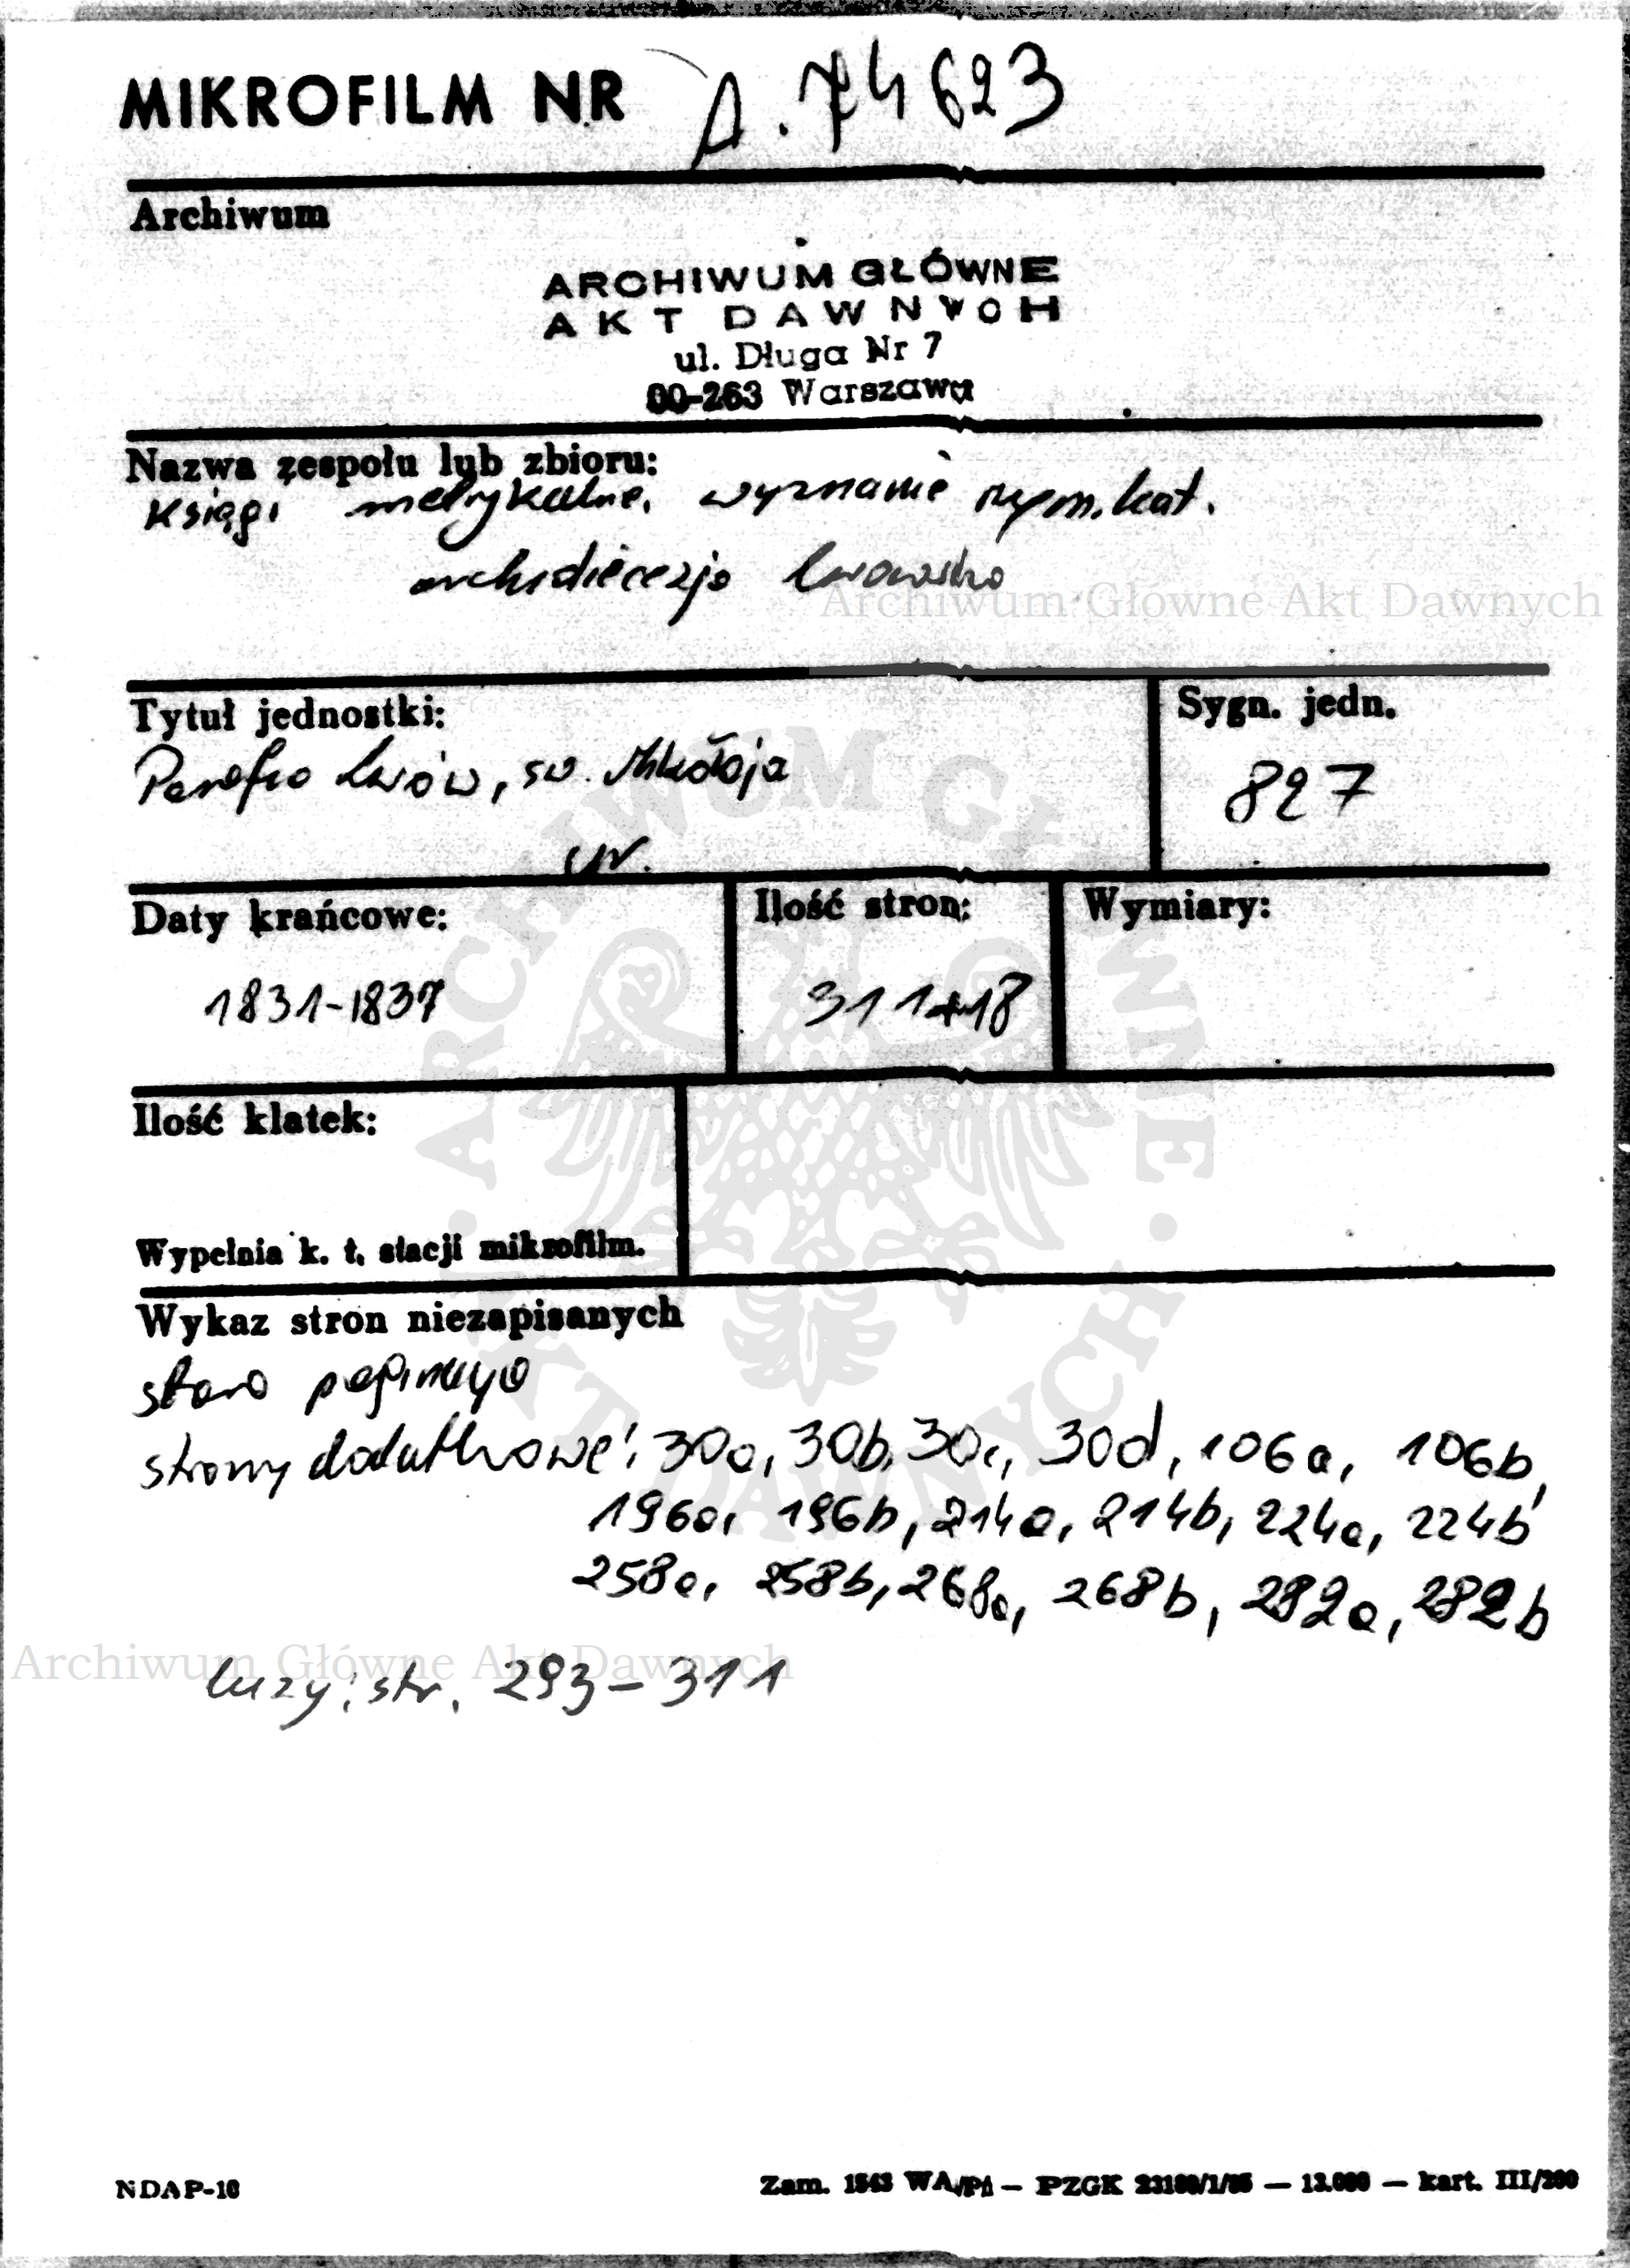 MIKROFILM NR A. 74623
Archiwum
ARCHIWUM GŁÓWNE
AKT DAWNYCH
ul. Długa Nr 7
00-263 Warszawa
Nazwa zespołu lub zbioru:
Księgi metrykalne, wyznanie rzym. kat.
archidiecezja lwowska
Archiwum Główne Akt Dawnych
Tytuł jednostki:
Parafia Lwów, św. Mikołaja
ur.
Sygn. jedn.
827
Daty krańcowe:
1831-1837
Ilość stron:
311+18
Wymiary:
Ilość klatek:
Wypełnia k. t. stacji mikrofilm.
ARCHIWUM GŁÓWNE · AKT DAWNYCH ·
Wykaz stron niezapisanych
stara paginacja
strony dodatkowe: 30a, 30b, 30c, 30d, 106a, 106b,
196a, 196b, 214a, 214b, 224a, 224b
258a, 258b, 268a, 268b, 282a, 282b
Archiwum Główne Akt Dawnych
luzy: str. 293-311
NDAP-10
Zam. 1543 — PZGK — kart. III/200